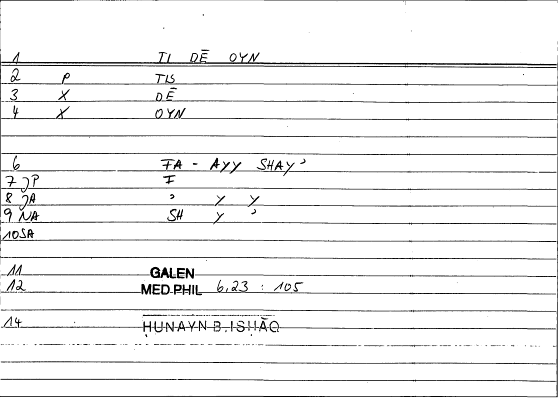 1 TI DĒ OYN
2 P TIS
3 X DĒ
4 X OYN
6 FA - AYY SHAY'
7 JP F
8 JA ' Y Y
9 NA SH Y '
10 SA
11 GALEN
12 MED.PHIL 6,23 : 105
14 ḤUNAYN B. ISḤĀQ